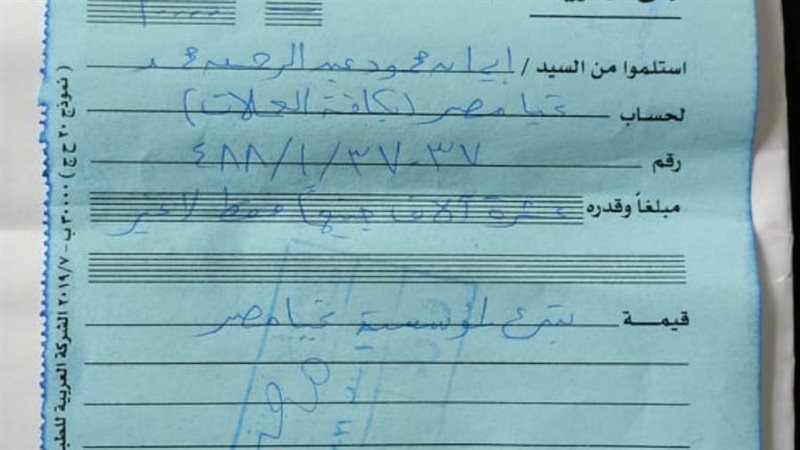 ١٠٠٠٠
استلموا من السيد / إيمان محمود عبد الرحمن محمد
لحساب تحيا مصر (بكافة العملات)
رقم ٤٨٨/١/٣٧٠٣٧
مبلغاً وقدره عشرة آلاف جنيهاً فقط لا غير
قيمـــة تبرع لمؤسسة تحيا مصر
( نموذج ٢٠ ح ج ) ٣٠٠٠٠ ب - ٢٠١٩/٧ الشركة العربية